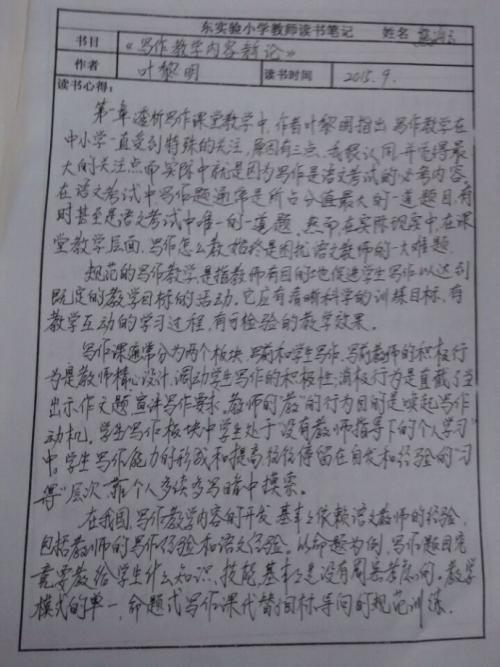 东实验小学教师读书笔记 姓名
书目 《写作教学内容新论》
作者 叶黎明 读书时间 2015.9.
读书心得：
第一章透析写作课堂教学中，作者叶黎明指出，写作教学在
中小学一直受到特殊的关注，原因有三点，我很认同，并觉得最
大的关注点而实际中就是因为写作是语文考试的必考内容，
在语文考试中写作题通常是所占分值最大的一道题目，有
时甚至是语文考试中唯一的一道题，然而在实际现实中，在课
堂教学层面，写作怎么教，始终是困扰语文教师的一大难题.
规范的写作教学，是指教师有目的地促进学生写作以达到
既定的教学目标的活动，它应有清晰科学的训练目标，有
教学互动的学习过程，有可检验的教学效果.
写作课通常分为两个板块，写前和学生写作，写前教师的积极行
为是教师精心设计，调动学生写作的积极性，消极行为是直截了当
出示作文题，宣讲写作要求，教师的“教”的行为目的是唤起写作
动机，学生写作板块中学生处于“没有教师指导下的个人学习”
中，学生写作能力的形成和提高往往停留在自发和经验的“习
得”层次，靠个人多读多写暗中摸索.
在我国，写作教学内容的开发，基本上依赖语文教师的经验，
包括教师的写作经验和语文经验.以命题为例，写作题目究
竟要教给学生什么知识，技能，基本上是没有周密考虑的，教学
模式的单一，命题式写作课代替目标导向的规范训练.